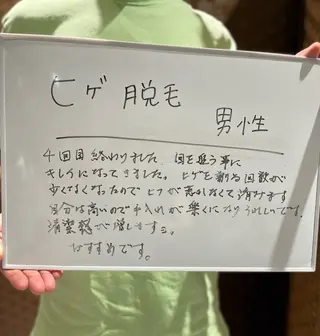 ヒゲ 脱毛
男性
4回目 終わりました 回を追う事に
キレイになってきました。ヒゲを剃る回数が
少なくなったので ヒフが荒れなくて済みます
自分は高いので 手入れが 楽になり うれしいです。
清潔感が増します。
おすすめです。